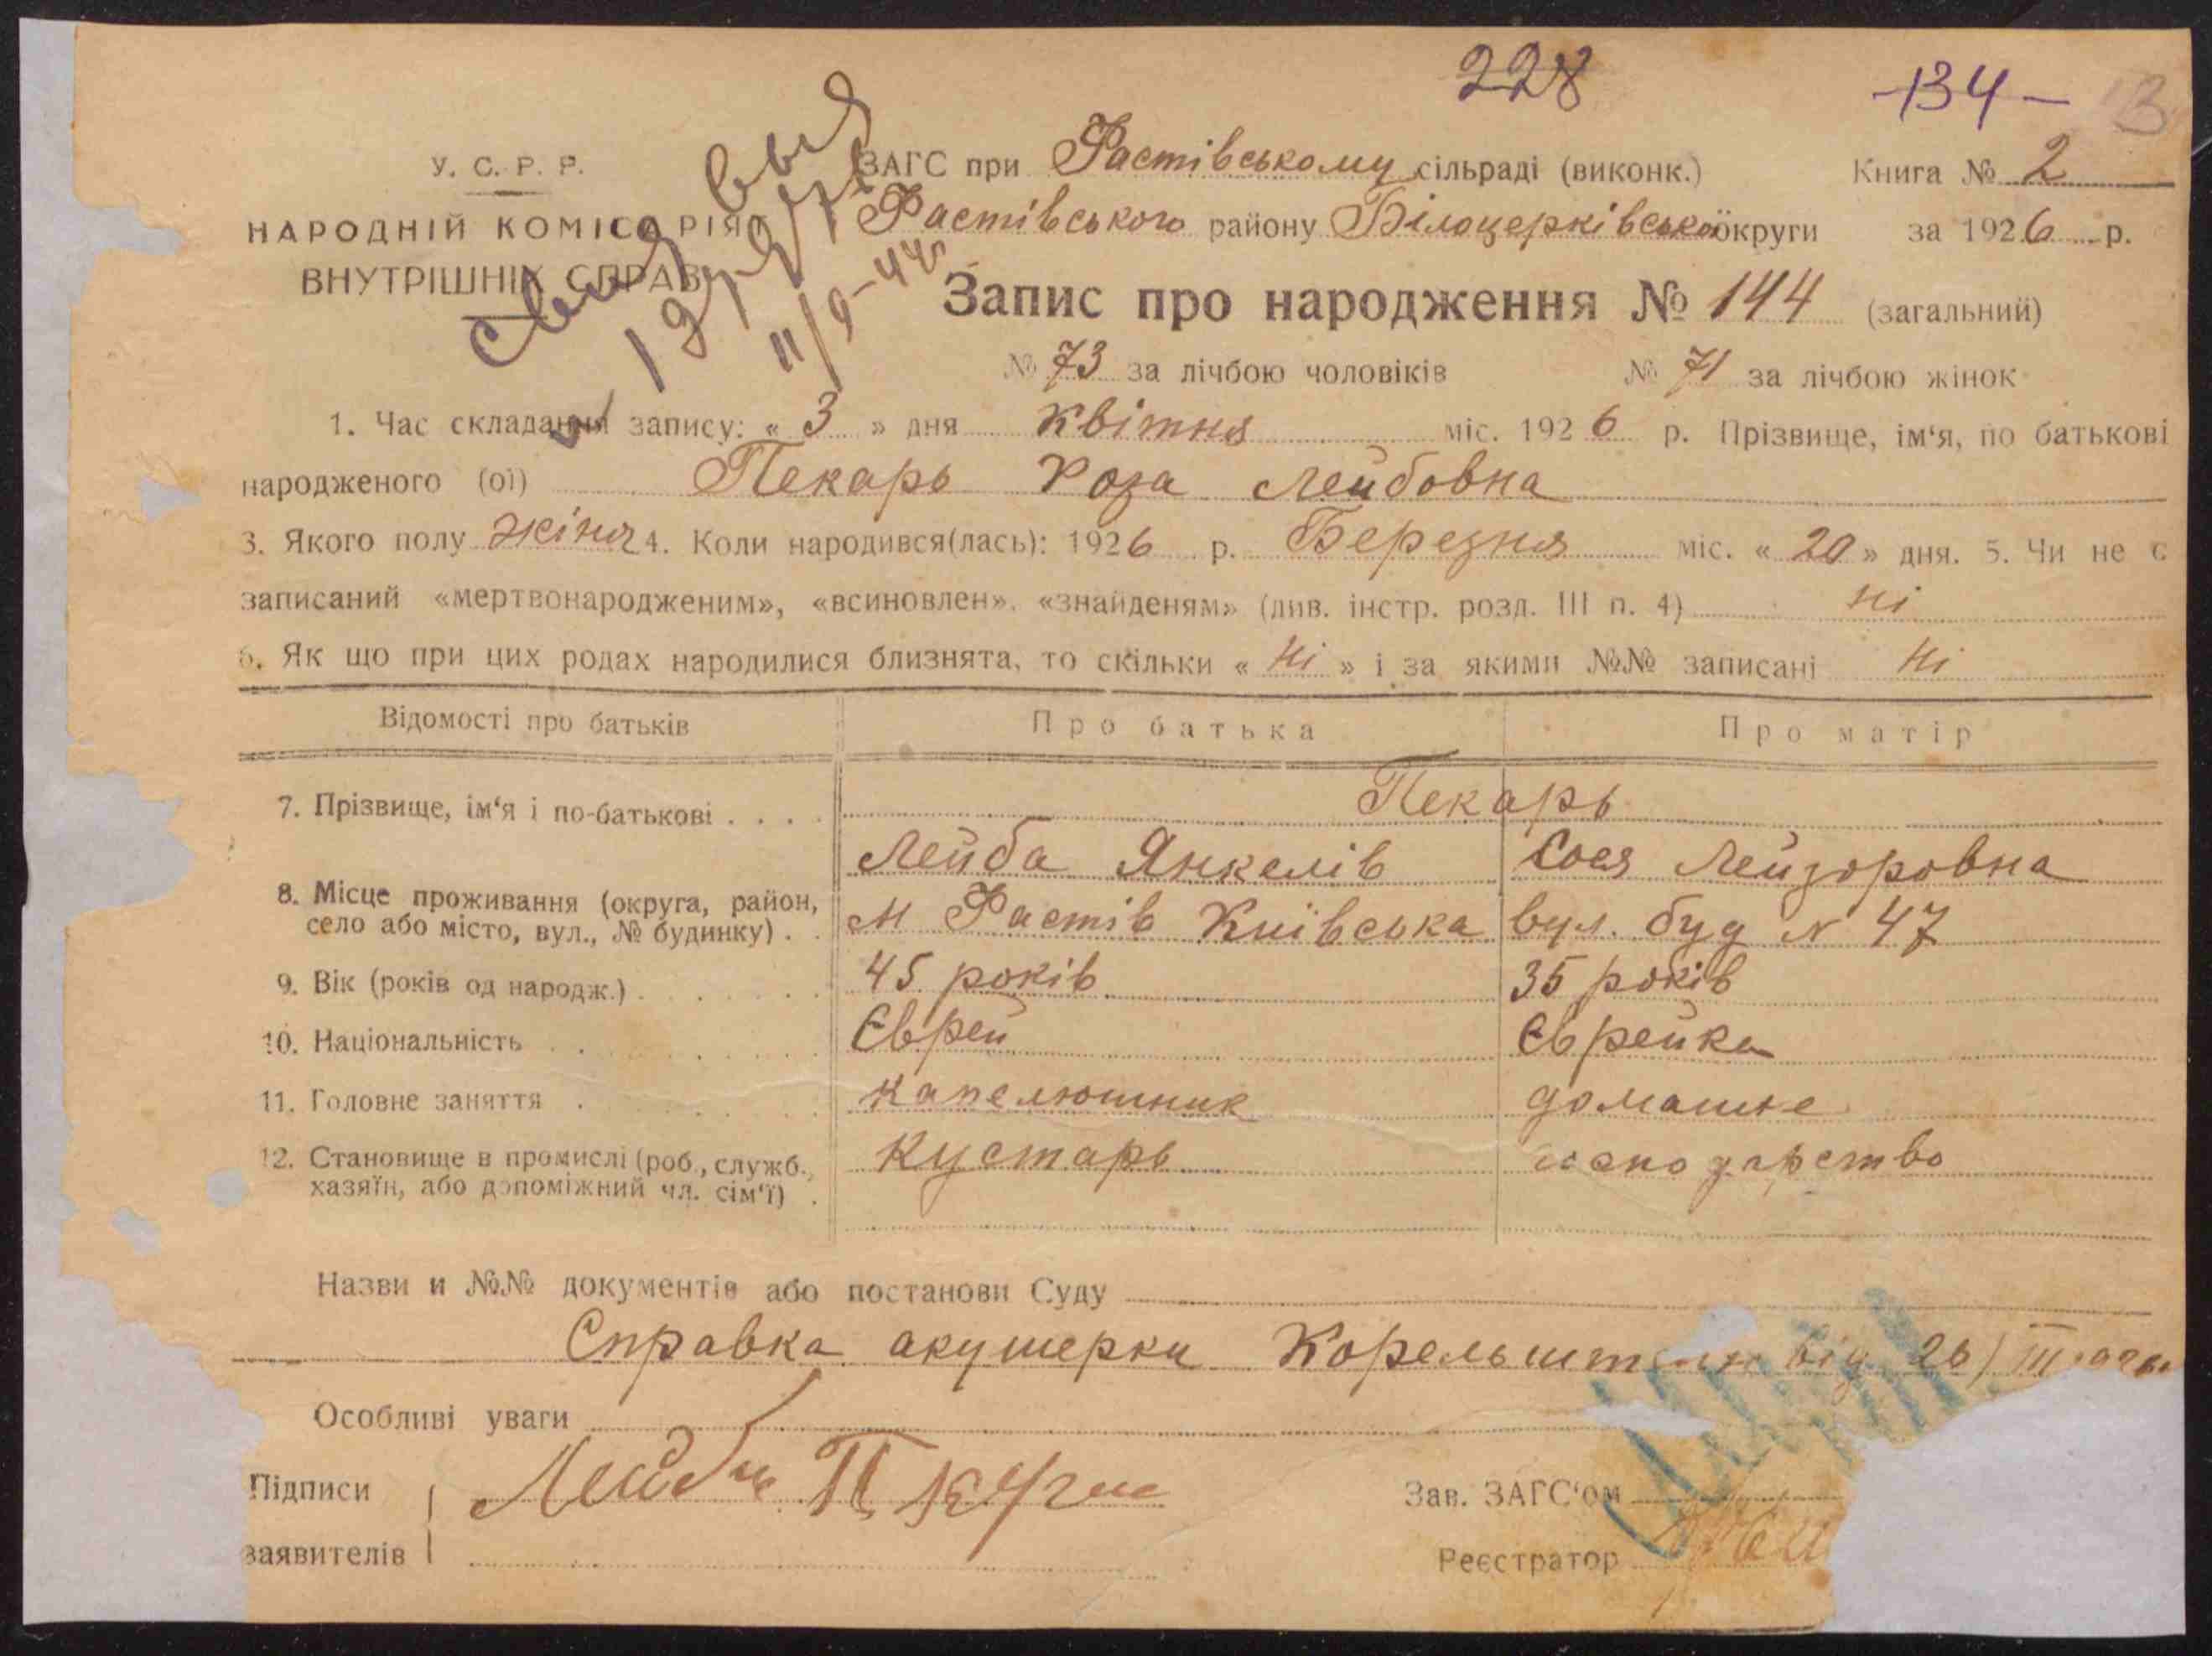 228
-134-
У. С. Р. Р.
НАРОДНІЙ КОМІСАРІЯТ
ВНУТРІШНІХ СПРАВ
11/9-44г
ЗАГС при Фастівському сільраді (виконк.) Книга № 2
Фастівського району Білоцерківської округи за 1926 р.
Запис про народження № 144 (загальний)
№ 73 за лічбою чоловіків № 71 за лічбою жінок
1. Час складання запису: « 3 » дня Квітня міс. 1926 р. Прізвище, ім‘я, по батькові
народженого (ої) Пекарь Роза Лейбовна
3. Якого полу жіноч 4. Коли народився(лась): 1926 р. Березня міс. « 20 » дня. 5. Чи не є
записаний «мертвонародженим», «всиновлен», «знайденям» (див. інстр. розд. III п. 4) Ні
6. Як що при цих родах народилися близнята, то скільки « Ні » і за якими №№ записані Ні
Відомості про батьків Про батька Про матір
7. Прізвище, ім‘я і по-батькові . . . . Пекарь
Лейба Янкелів Сося Лейзоровна
8. Місце проживання (округа, район,
село або місто, вул., № будинку) . . М Фастів Київська вул. буд № 47
9. Вік (років од народж.) . 45 років 35 років
10. Національність Єврей Єврейка
11. Головне заняття . капелюшник домашнє
12. Становище в промислі (роб., служб., Кустарь господарство
хазяїн, або допоміжний чл. сім‘ї) .
Назви и №№ документів або постанови Суду
Справка акушерки Корельштейн від 26/III
Особливі уваги
Підписи Лейба
заявителів
Зав. ЗАГС‘ом
Реєстратор